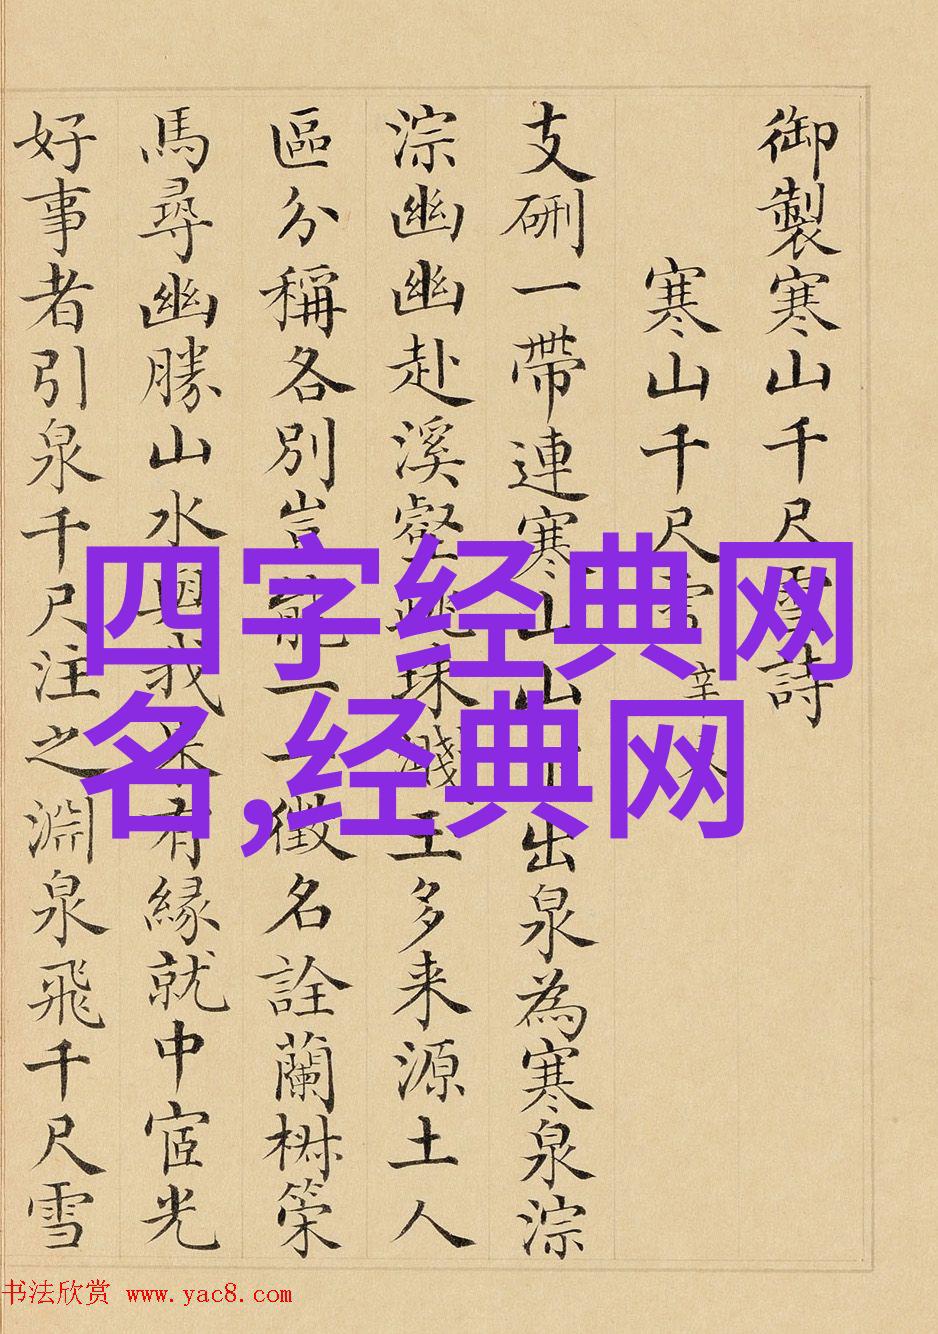 御製寒山千尺雪詩
寒山千尺雪 辛
支硎一帶連寒山山出泉為寒泉淙
淙幽幽赴溪壑跳珠濺玉多来源土人
區分稱各別豈能一一徵名詮蘭樹策
馬尋幽勝山水與我未有緣就中宦光
好事者引泉千尺注之淵泉飛千尺雪
四字经典网
名,经典网
书法欣赏 www.yac8.com